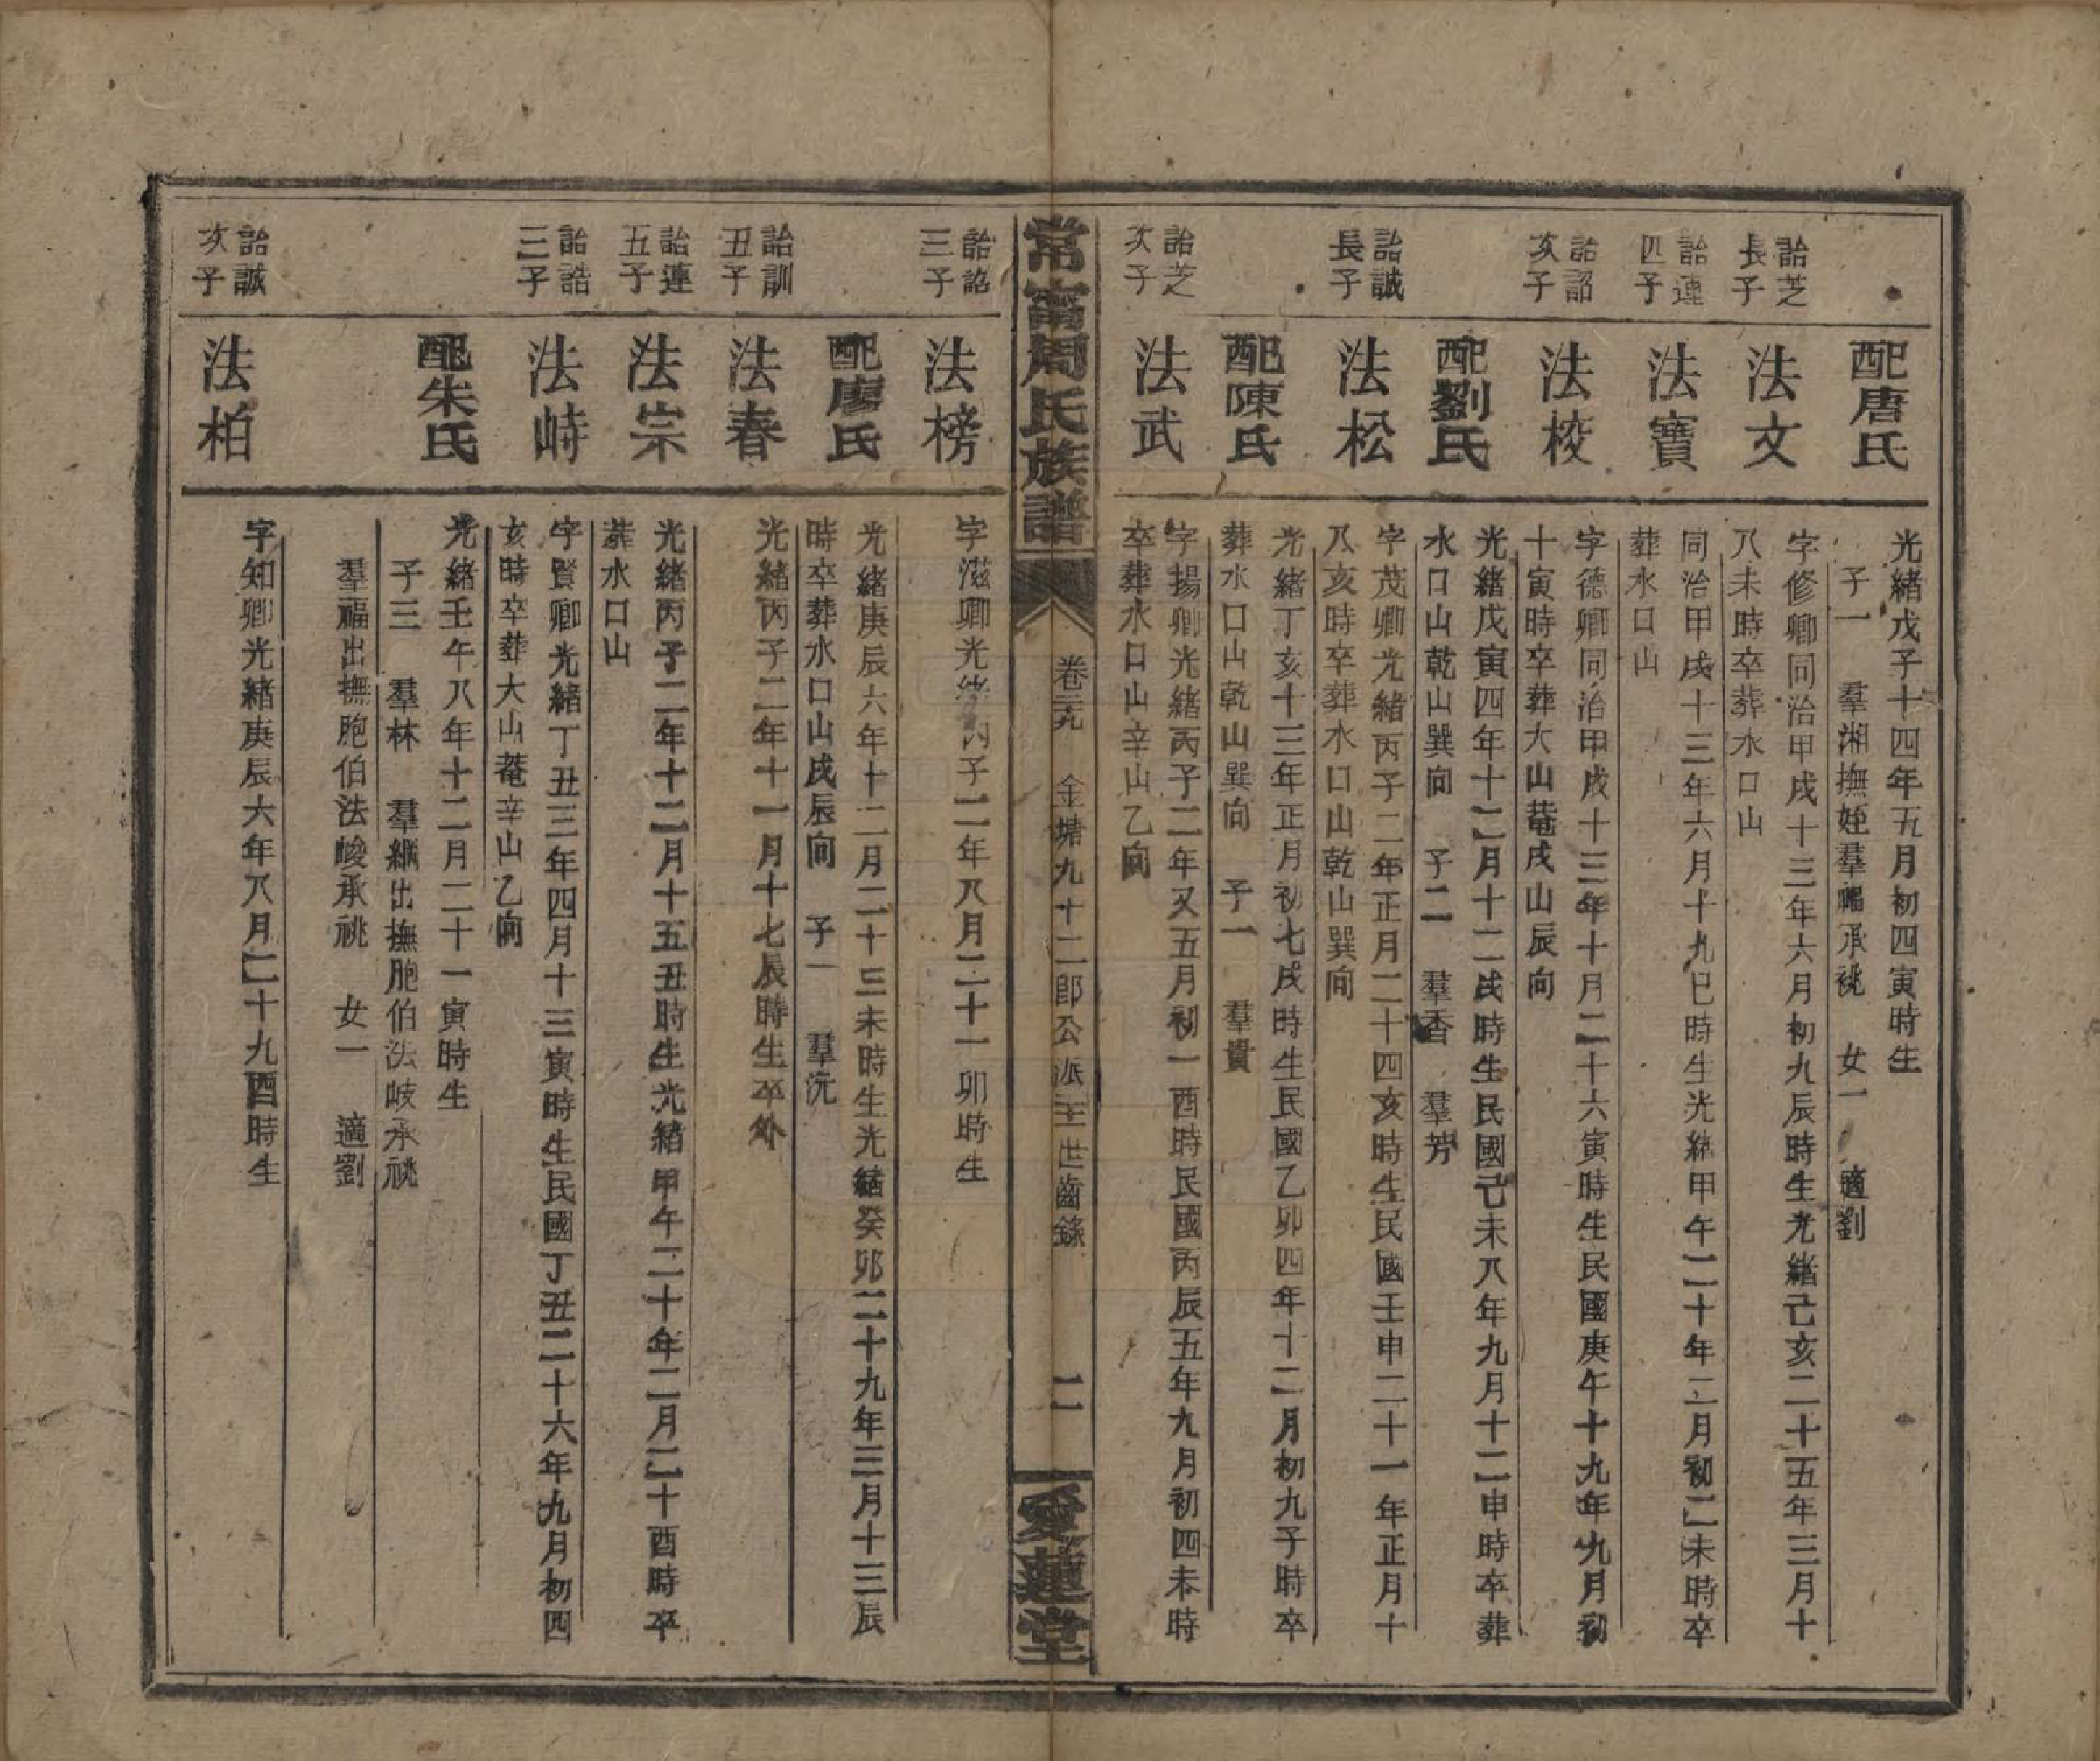 配唐氏
光緒戊子十四年五月初四寅時生
子一　羣湘撫姪羣福承祧　女一　適劉
詒芝
長子
法文
字修卿同治甲戌十三年六月初九辰時生光緒己亥二十五年三月十
八未時卒葬水口山
詒連
四子
法寶
同治甲戌十三年六月十九巳時生光緒甲午二十年二月初二未時卒
葬水口山
詒詔
次子
法校
字德卿同治甲戌十三年十月二十六寅時生民國庚午十九年九月初
十寅時卒葬大山菴戌山辰向
配劉氏
光緒戊寅四年十二月十二戌時生民國己未八年九月十二申時卒葬
水口山乾山巽向　子二　羣香　羣芳
詒誠
長子
法松
字茂卿光緒丙子二年正月二十四亥時生民國壬申二十一年正月十
八亥時卒葬水口山乾山巽向
配陳氏
光緒丁亥十三年正月初七戌時生民國乙卯四年十二月初九子時卒
葬水口山乾山巽向　子一　羣貴
詒芝
次子
法武
字揚卿光緒丙子二年又五月初一酉時民國丙辰五年九月初四未時
卒葬水口山辛山乙向
常甯周氏族譜
卷三九　金塘九十二郎公派世齒錄
二
愛蓮堂
詒詔
三子
法榜
字滋卿光緒丙子二年八月二十一卯時生
配廖氏
光緒庚辰六年十二月二十三未時生光緒癸卯二十九年三月十三辰
時卒葬水口山戌辰向　子一　羣沅
詒訓
丑子
法春
光緒丙子二年十一月十七辰時生卒外
詒連
五子
法宗
光緒丙子二年十二月十五丑時生光緒甲午二十年二月二十酉時卒
葬水口山
詒誥
三子
法峙
字賢卿光緒丁丑三年四月十三寅時生民國丁丑二十六年九月初四
亥時卒葬大山菴辛山乙向
配朱氏
光緒壬午八年十二月二十一寅時生
子三　羣林　羣緗出撫胞伯法岐承祧
羣福出撫胞伯法峻承祧　女一　適劉
詒誠
次子
法柏
字知卿光緒庚辰六年八月二十九酉時生